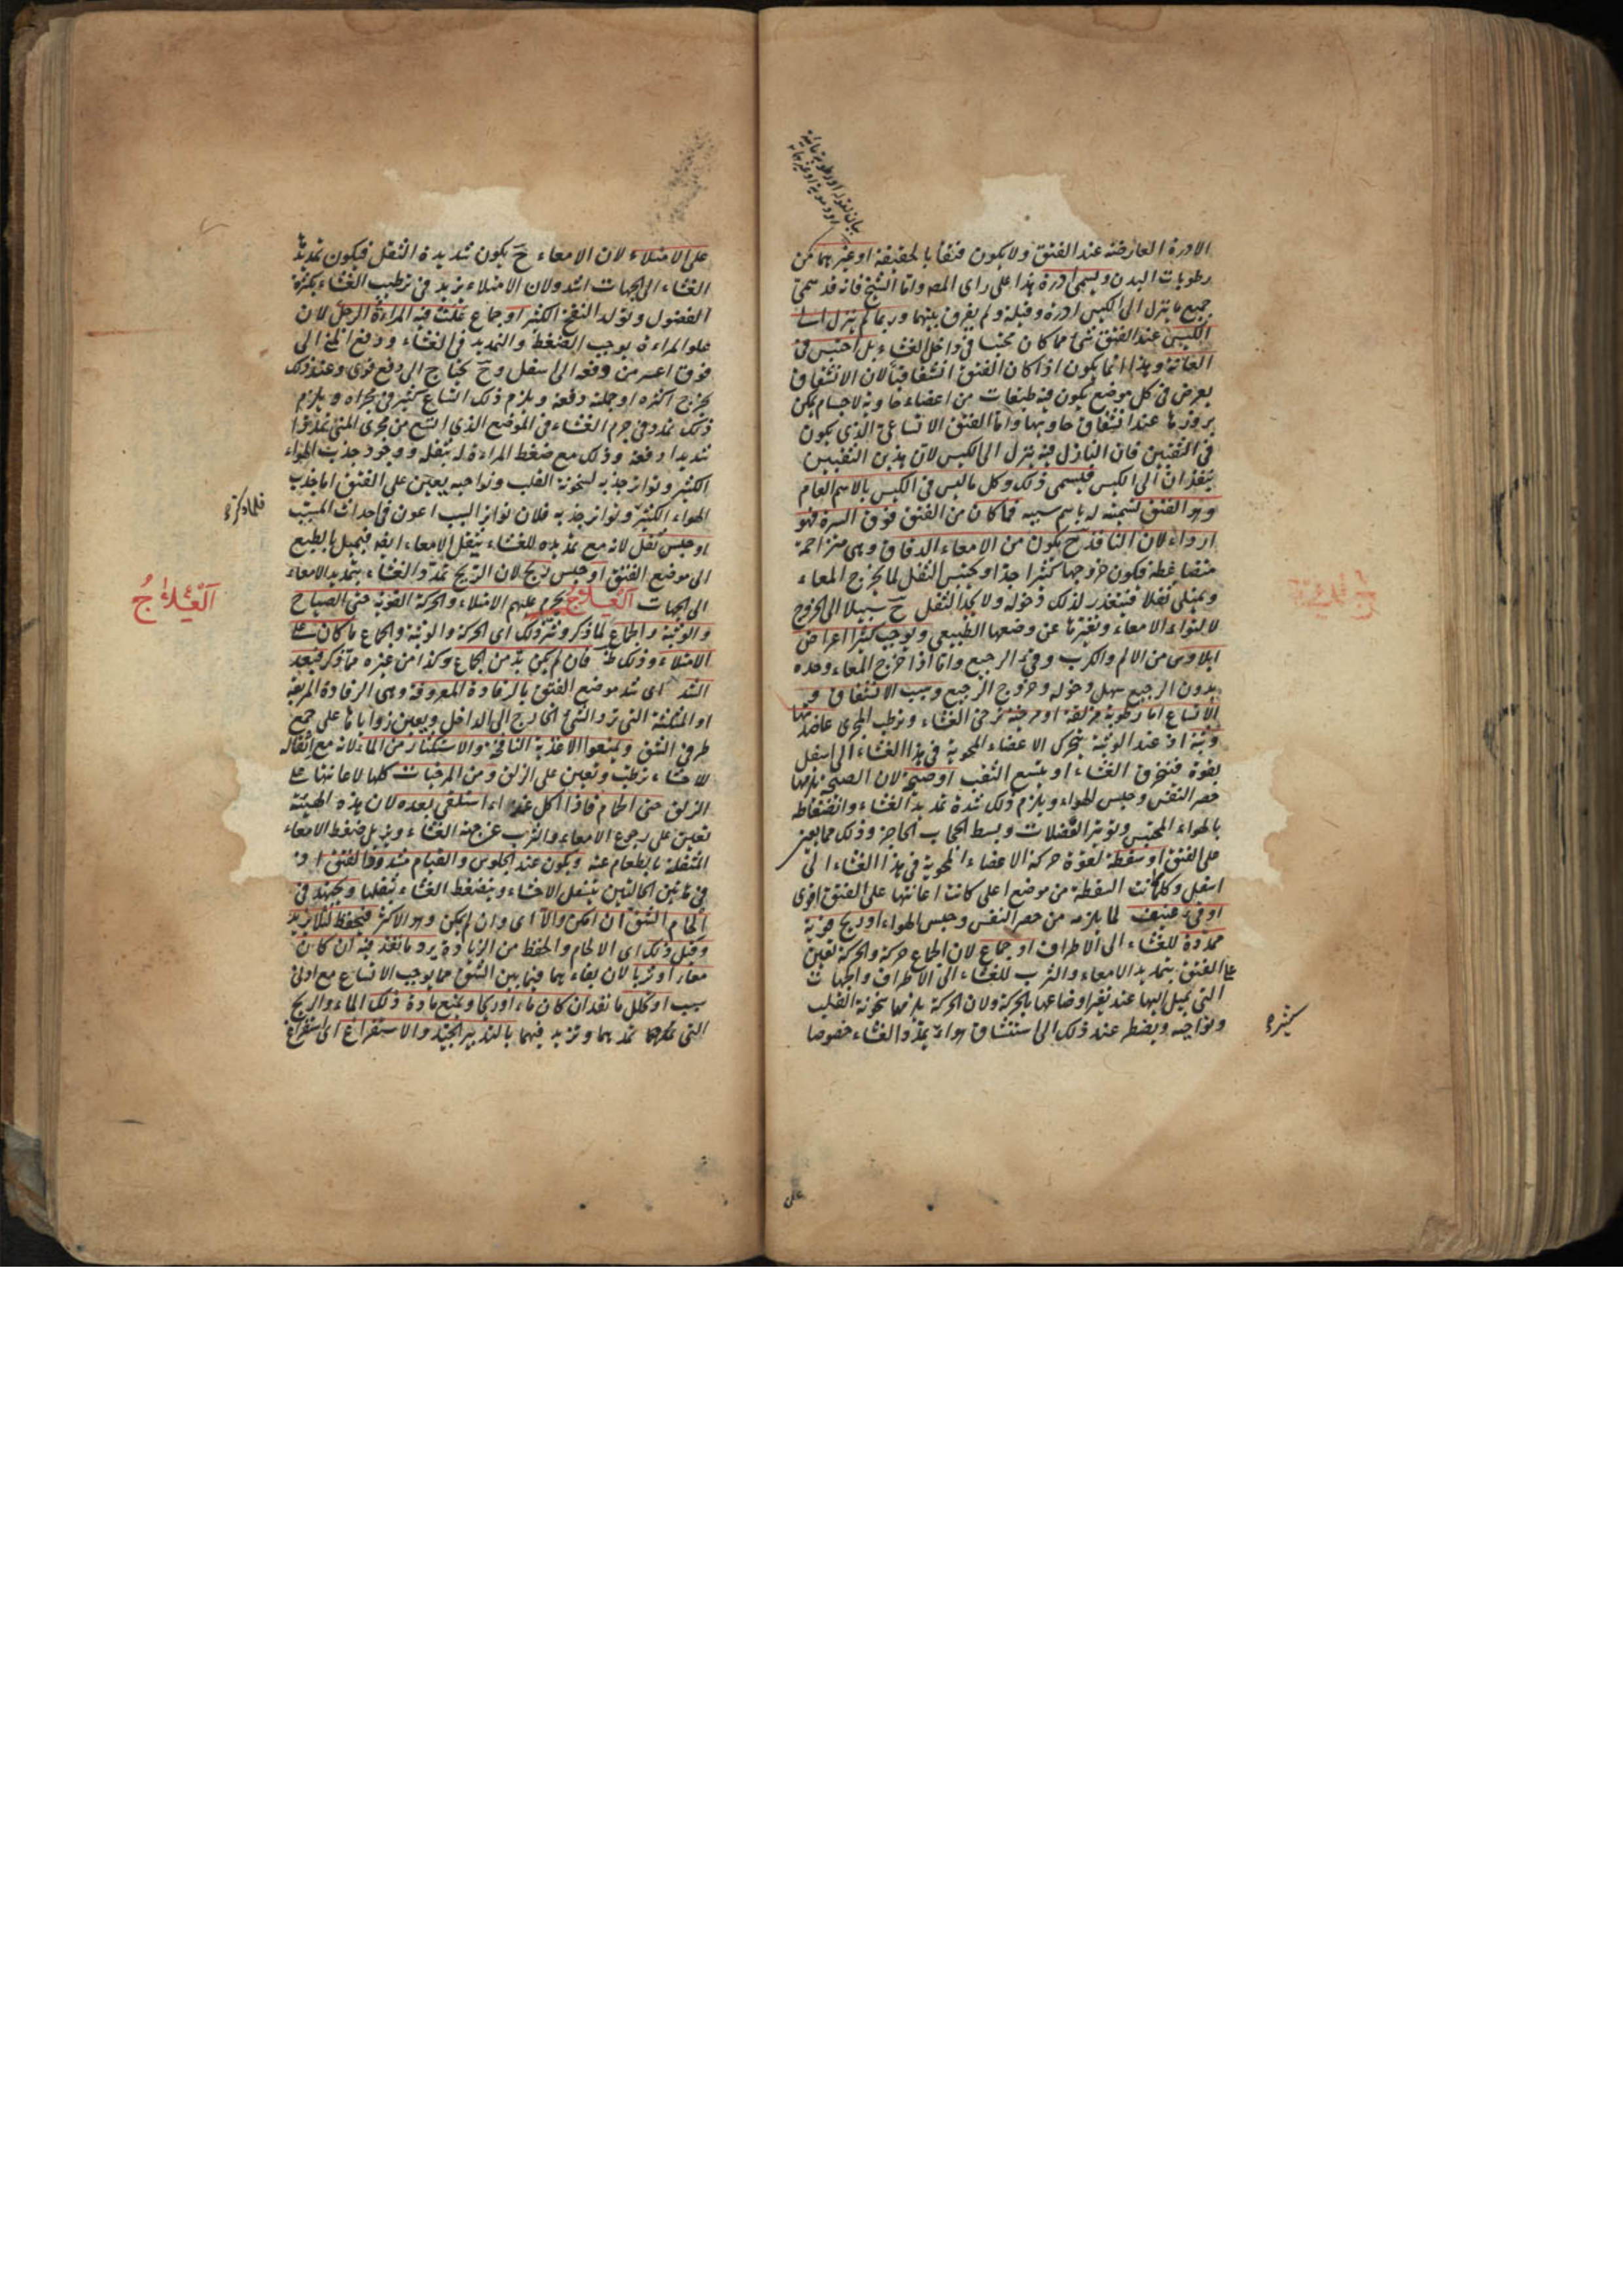 الادرة العارضة عند الفتق ولا يكون فتقا بالحقيقة او غيرهما من
رطوبات البدن ويسمى ادرة هذا على راى المص واما الشيخ فانه قد سمى
جميع ما ينزل الى الكيس ادرة وقيلة ولم يفرق بينهما وربما لم ينزل الى
الكيس عند الفتق شئ مما كان محتبسا فى داخل الغشاء بل احتبس فى
العانة وهذا انما يكون اذا كان الفتق انشقاقيا لان الانشقاق
يعرض فى كل موضع يكون فيه طبقات من اعضاء حاوية لاجسام يمكن
بروزها عند انشقاق حاويها واما الفتق الاتساعى الذى يكون
فى الثقبين فان النازل فيه ينزل الى الكيس لان هذين الثقبين
ينفذان الى الكيس فيسمى ذلك وكل ما ليس فى الكيس بالاسم العام
وهو الفتق تسمية له باسم سببه فما كان من الفتق فوق السرة فهو
اردأ لان النافذ ح يكون من الامعاء الدقاق وهى متزاحمة
متضاغطة فيكون خروجها كثيرا جدا ويحتبس الثفل لما يخرج المعاء
ويمتلى ثفلا فيتعذر لذلك دخوله ولا يجد الثفل ح سبيلا الى الخروج
لالتواء الامعاء وتغيرها عن وضعها الطبيعى ويوجب كثيرا اعراض
ايلاوس من الالم والكرب وقئ الرجيع واما اذا خرج المعاء وحده
بدون الرجيع سهل دخوله وخروج الرجيع وسبب الانشقاق و
الاتساع اما رطوبة مزلقة او مرخية ترخى الغشاء وترطب المجرى عاضدتها
وثبة اذ عند الوثبة يتحرك الاعضاء المحوية فى هذا الغشاء الى اسفل
بقوة فتخرق الغشاء او يتسع الثقب او صيحة لان الصيحة يلزمها
حصر النفس وحبس الهواء ويلزم ذلك شدة تمديد الغشاء وانضغاطه
بالهواء المحتبس وتوتر العضلات وبسط الحجاب الحاجز وذلك مما يعين
على الفتق او سقطة لقوة حركة الاعضاء المحوية فى هذا الغشاء الى
اسفل وكلما كانت السقطة من موضع اعلى كانت اعانتها على الفتق اقوى
او قئ عنيف لما يلزمه من حصر النفس وحبس الهواء او ريح قوية
ممددة للغشاء الى الاطراف او جماع لان الجماع حركة والحركة تعين
على الفتق بتمديد الامعاء والثرب للغشاء الى الاطراف والجهات
التى يميل اليها عند تغير اوضاعها بالحركة ولان الحركة يلزمها سخونة القلب
ونواحيه ويضطر عند ذلك الى استنشاق هواء يمدد الغشاء خصوصا
كثير
على
على الامتلاء لان الامعاء ح يكون شديدة الثقل فيكون تمديد
الغشاء الى الجهات اشد ولان الامتلاء يزيد فى ترطيب الغشاء بكثرة
الفضول وتولد النفخ الكثير او جماع علت فيه المراءة الرجل لان
علو المراءة يوجب الضغط والتمديد فى الغشاء ودفع المنى الى
فوق اعسر من دفعه الى اسفل وح يحتاج الى دفع قوى وعند ذلك
يخرج اكثره او جملته دفعة ويلزم ذلك اتساع كثير فى مجراه ويلزم
ذلك تمدد فى جرم الغشاء فى الموضع الذى اتسع من مجرى المنى تمددا
شديدا دفعة وذلك مع ضغط المراءة له بثقله ووجود جذب الهواء
الكثير وتواتر جذبه لسخونة القلب ونواحيه يعين على الفتق اما جذب
الهواء الكثير وتواتر جذبه فلان تواتر السبب اعون فى احداث المسبب
او حبس ثفل لانه مع تمديده للغشاء يثقل الامعاء ايضا فيميل بالطبع
الى موضع الفتق او حبس ريح لان الريح تمدد الغشاء بتمديد الامعاء
الى الجهات العلاج يحرم عليهم الامتلاء والحركة القوية حتى الصياح
والوثبة والجماع لما ذكر وشر ذلك اى الحركة والوثبة والجماع ما كان على
الامتلاء وذلك ظ فان لم يكن بد من الجماع وكذا من غيره مما ذكر فبعد
الشد اى شد موضع الفتق بالرفادة المعروفة وهى الرفادة المربعة
او المثلثة التى ترد الشئ الخارج الى الداخل ويعين زواياها على جمع
طرفى الشق ويمنعوا الاغذية النافخة والاستكثار من الماء لانه مع اثقاله
للاحشاء يرطب ويعين على الزلق ومن المرخيات كلها لاعانتها على
الزلق حتى الحمام فاذا اكل غذاء استلقى بعده لان هذه الهيئة
تعين على رجوع الامعاء والثرب عن جهة الغشاء ويزيل ضغط الامعاء
المثقلة بالطعام عنه ويكون عند الجلوس والقيام مشدود الفتق اذ
فى هاتين الحالتين يتسفل الاحشاء وينضغط الغشاء بثقلها ويجتهد فى
الحام الشق ان امكن والا اى وان لم يكن وهو الاكثر فيحفظ لئلا يزيد
وقبل ذلك اى الالحام والحفظ من الزيادة يرد ما نفذ فيه ان كان
معاء او ثربا لان بقاءهما فيما بين الشق مما يوجب الاتساع مع ادنى
سبب او يحلل ما نفذ ان كان ماء او ريحا ويمنع مادة ذلك الماء والريح
التى تمدهما وتزيد فيهما بالتدبير الجيد والاستفراغ اى استفراغ
العلاج